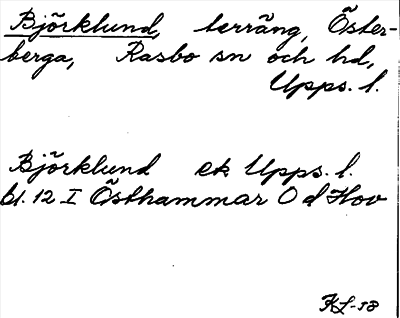 Björklund, terräng, Öster-
berga, Rasbo sn och hd,
Upps. l.
Björklund ek Upps. l.
bl. 12 I Östhammar O d Hov
KL-58